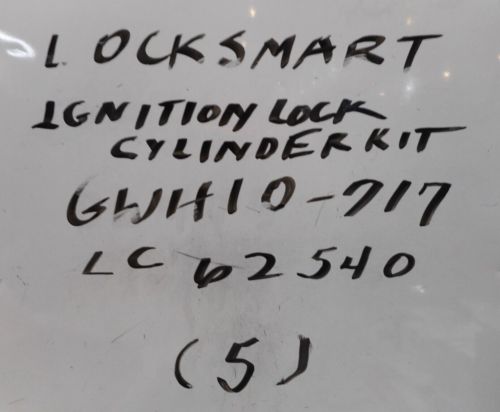 LOCKSMART
IGNITION LOCK
CYLINDER KIT
GWH10-717
LC 62540
(5)